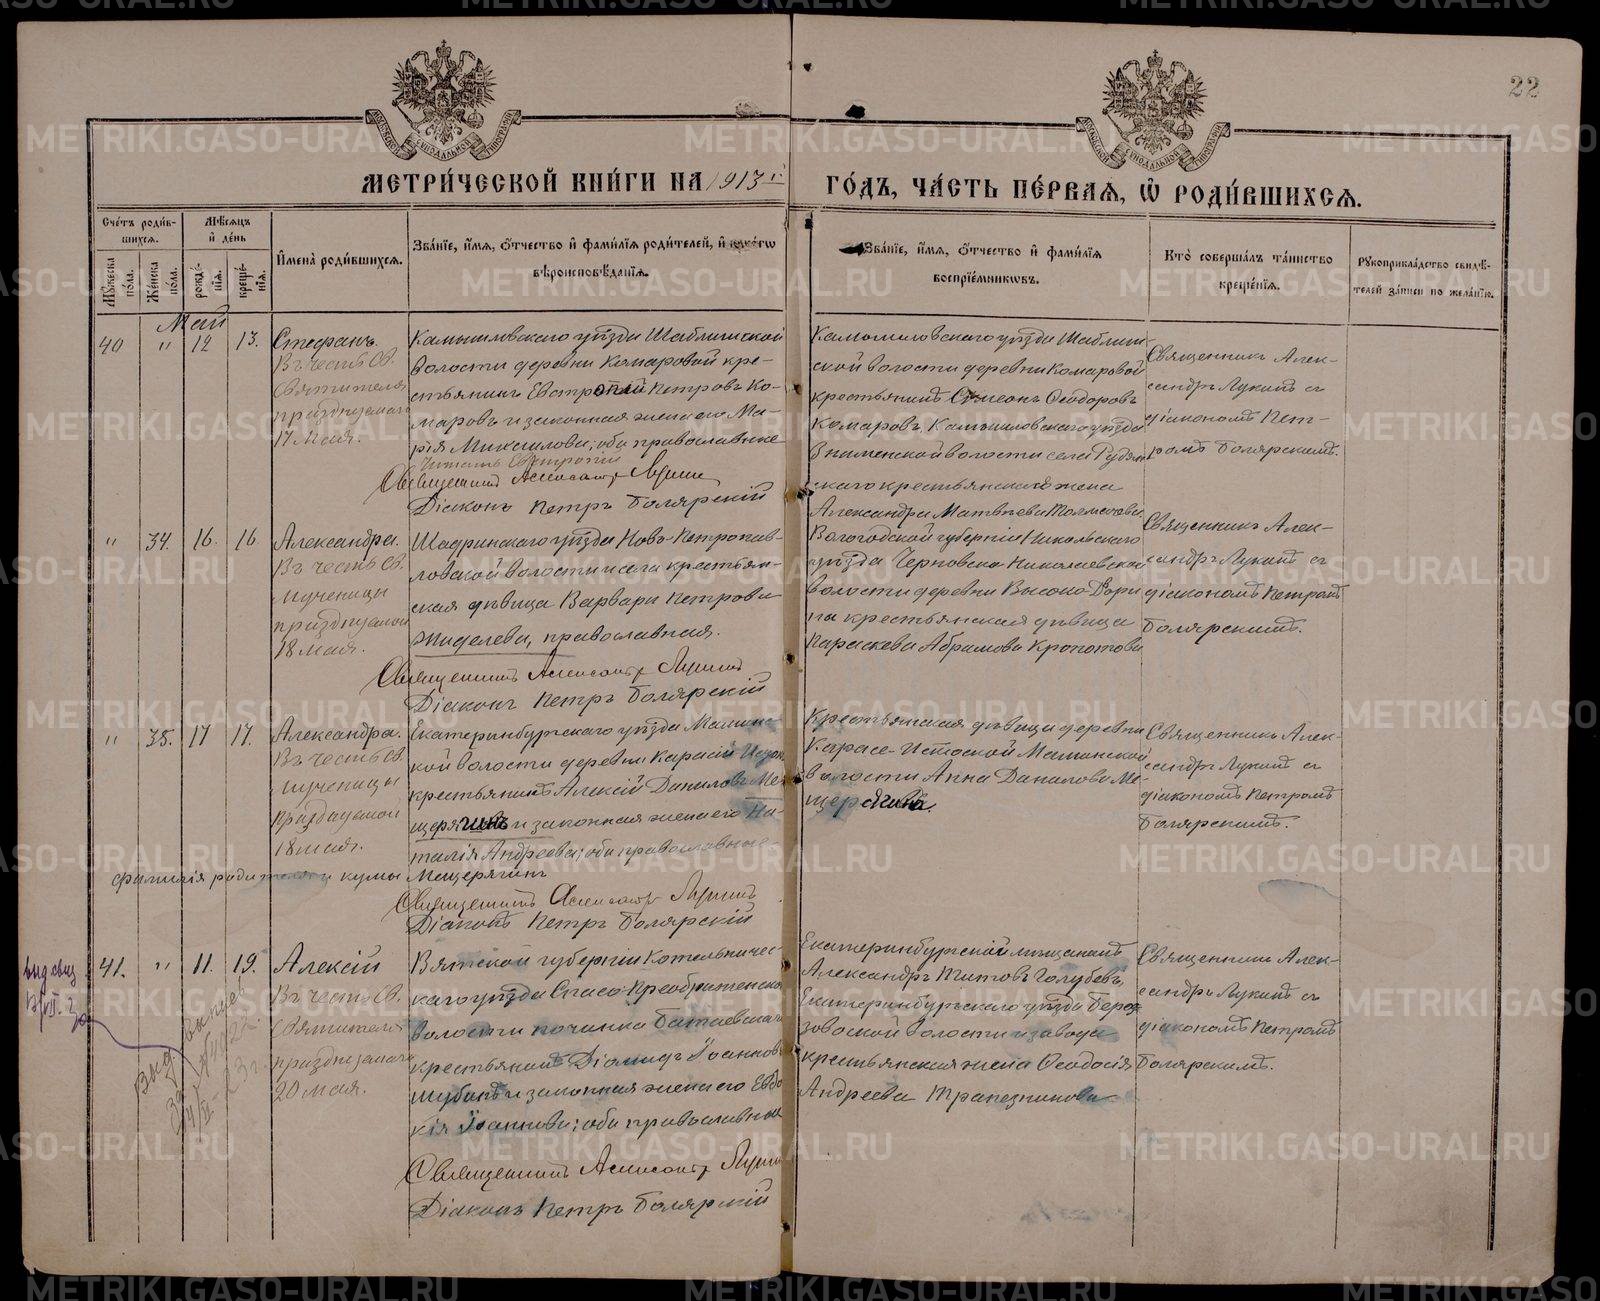 22
МЕТРИ́ЧЕСКОЙ КНИ́ГИ НА 1913й ГО́ДЪ, ЧА́СТЬ ПЕ́РВАѦ, Ѽ РОДИ́ВШИХСѦ.
Счетъ роди́вшихсѧ.
Мѣсѧцъ и день
Мужеска по́ла.
Же́нска по́ла.
рожде́нїѧ.
креще́нїѧ.
Имена̀ роди́вшихсѧ.
Зва́нїе, и́мѧ, о́тчество и фами́лїѧ роди́телей, и како́гѡ вѣроисповѣ́данїѧ.
Зва́нїе, и́мѧ, о́тчество и фами́лїѧ воспрїе́мникѡвъ.
Кто̀ соверша́лъ та́инство креще́нїѧ.
Рукоприкла́дство свидѣ́телей за́писи по жела́нїю.
Май
40 " 12 13.
Стефанъ.
Въ честь Св.
Святителя
празднуемаго
17 Мая.
Камышловскаго уѣзда Шаблишской
волости деревни Комаровой кре-
стьянинъ Евстропій Петровъ Ко-
маровъ и законная жена его Ма-
рія Михаилова; оба православные
Священникъ Александръ Лукинъ
Діаконъ Петръ Болярскій
Камышловскаго уѣзда Шаблиш-
ской волости деревни Комаровой
крестьянинъ Симеонъ Ѳеодоровъ
Комаровъ, Камышловскаго уѣзда
волости села
скаго крестьянская жена
Александра Матвѣева
Священникъ Алек-
сандръ Лукинъ съ
діакономъ Пет-
ромъ Болярскимъ.
" 34. 16. 16.
Александра.
Въ честь Св.
мученицы
празднуемой
18 мая.
Шадринскаго уѣзда Ново-Петропав-
ловской волости и села крестьян-
ская дѣвица Варвара Петрова
Жиделева, православная.
Священникъ Александръ Лукинъ
Діаконъ Петръ Болярскій
Вологодской губерніи Никольскаго
уѣзда Черновско-Николаевской
волости деревни Высоко-
на крестьянская дѣвица
Параскева Абрамова Кропотова
Священникъ Алек-
сандръ Лукинъ съ
діакономъ Петромъ
Болярскимъ.
" 35. 17 17.
Александра.
Въ честь Св.
мученицы
празднуемой
18 мая.
Екатеринбургскаго уѣзда
кой волости деревни
крестьянинъ Алексій Даниловъ Ме-
и законная жена его На-
талія Андреева; оба православные
Фамилія родителей и кумы Мещерягинъ
Священникъ Александръ Лукинъ
Діаконъ Петръ Болярскій
Крестьянская дѣвица деревни
Карасе-Истокской Маминской
волости Анна Данилова Ме-
Священникъ Алек-
сандръ Лукинъ съ
діакономъ Петромъ
Болярскимъ.
41. " 11. 19.
Алексій
Въ честь Св.
Святителя
празднуемаго
20 мая.
Вятской губерніи Котельничес-
каго уѣзда Спасо-Преображенской
волости починка
крестьянинъ Діомидъ Іоанновъ
и законная жена его Евдо-
кія Іоаннова; оба православные
Священникъ Александръ Лукинъ
Діаконъ Петръ Болярскій
Екатеринбургскій мѣщанинъ
Александръ Титовъ Голубевъ,
Екатеринбургскаго уѣзда Бере-
зовской волости и завода
крестьянская жена Ѳеодосія
Андреева Трапезникова
Священникъ Алек-
сандръ Лукинъ съ
діакономъ Петромъ
Болярскимъ.
METRIKI.GASO-URAL.RU